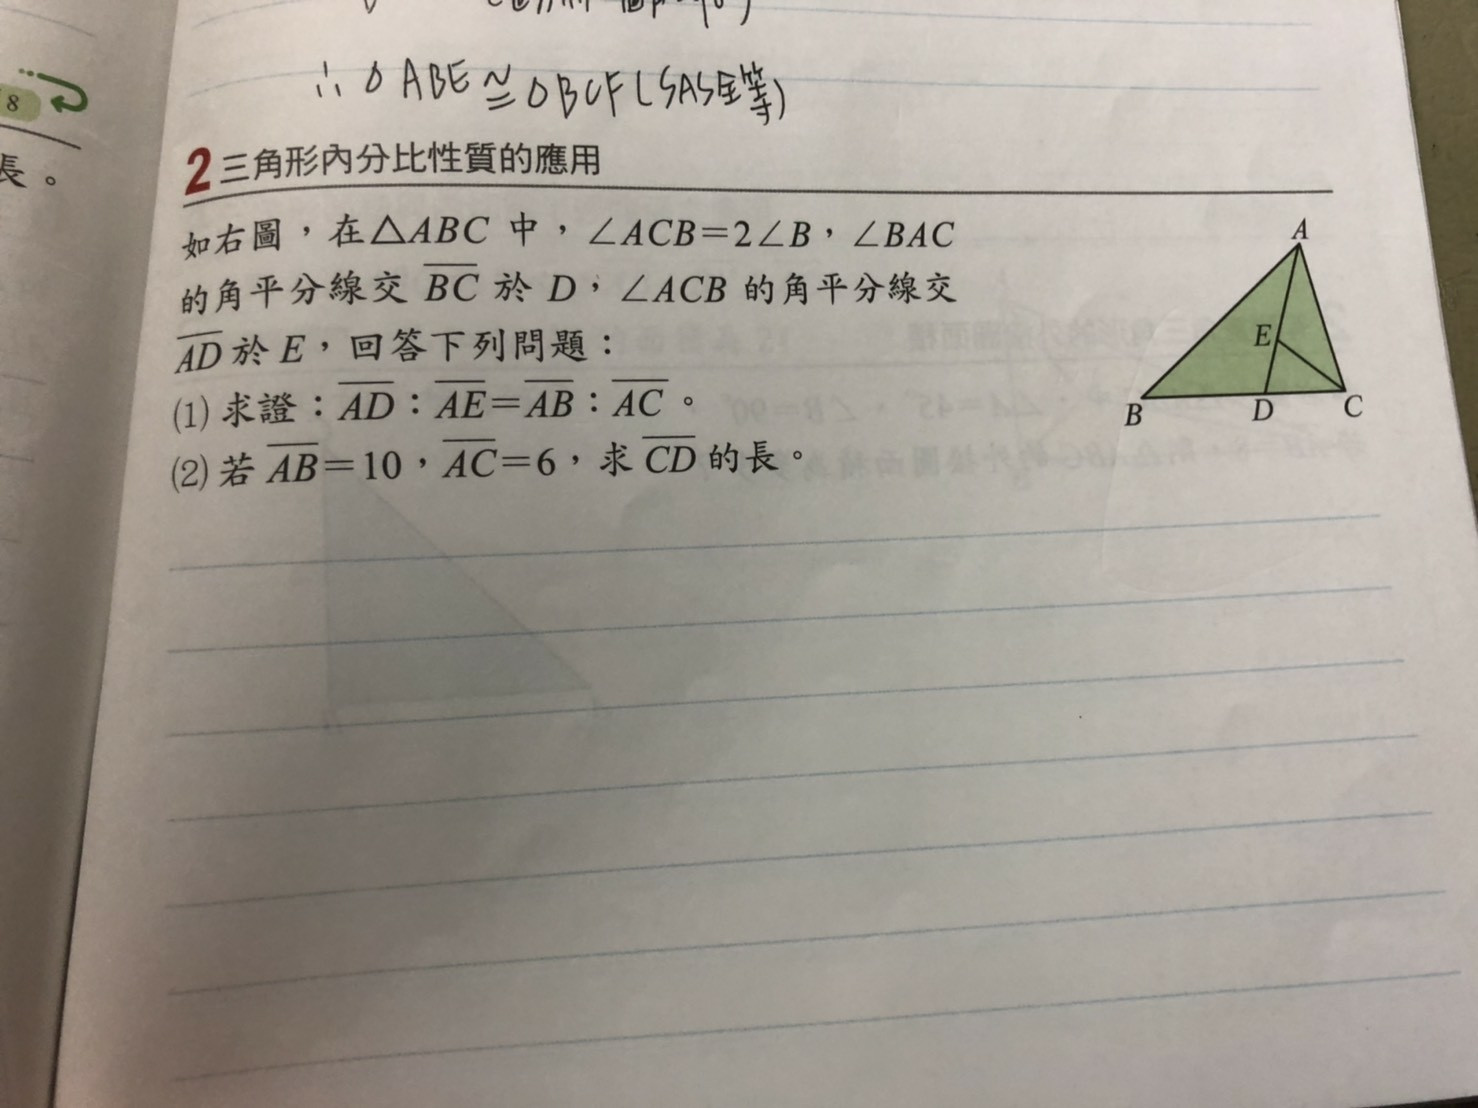 ∴ △ABE≅△BCF(SAS全等)
8
長。
2 三角形內分比性質的應用
如右圖，在△ABC 中，∠ACB=2∠B，∠BAC
的角平分線交 BC 於 D，∠ACB 的角平分線交
AD 於 E，回答下列問題：
(1) 求證：AD：AE=AB：AC。
(2) 若 AB=10，AC=6，求 CD 的長。
A
E
B
D
C